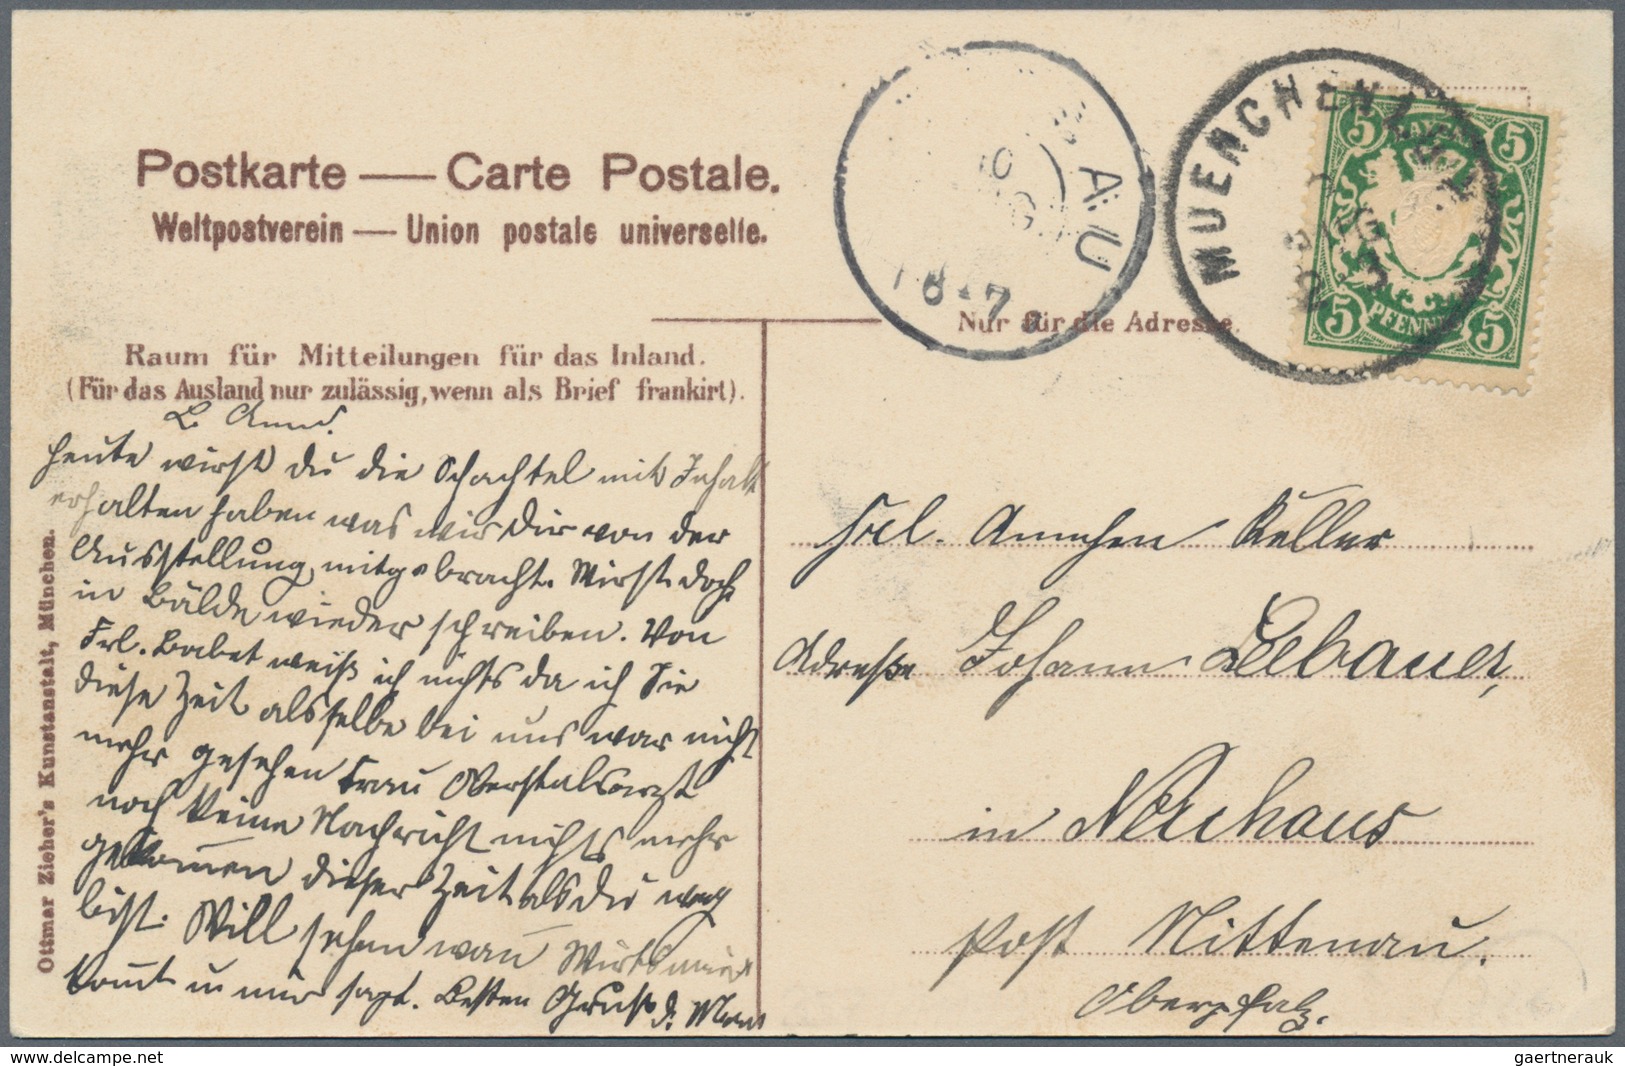 Postkarte — Carte Postale.
Weltpostverein — Union postale universelle.
A.U
6-7
MUENCHEN
BAYERN
5 5
5 PFENNIG 5
Nur für die Adresse.
Raum für Mitteilungen für das Inland.
(Für das Ausland nur zulässig, wenn als Brief frankirt).
L.
heute wirst du die Schachtel mit Inhalt
erhalten haben was wir dir von der
Ausstellung mitgebracht. Wirst doch
in Bälde wieder schreiben. Von
Frl. Babet weiß ich nichts da ich Sie
diese Zeit als selbe bei uns war nicht
mehr gesehen Frau Oberstabsarzt
noch keine Nachricht nichts mehr
gekomen dieser Zeit als du weg
bist. Will sehen wan
komt u mir sagt. Besten Gruß d.
Frl. Annchen Keller
Adreße Johann Leebauer,
in Neuhaus
Post Nittenau.
Oberpfalz.
Ottmar Zieher's Kunstanstalt, München.
gaertnerauk @ www.delcampe.net